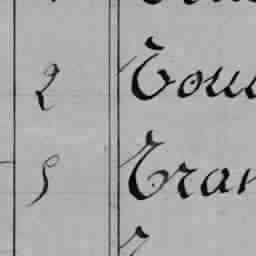 2 Tou
5 Tran